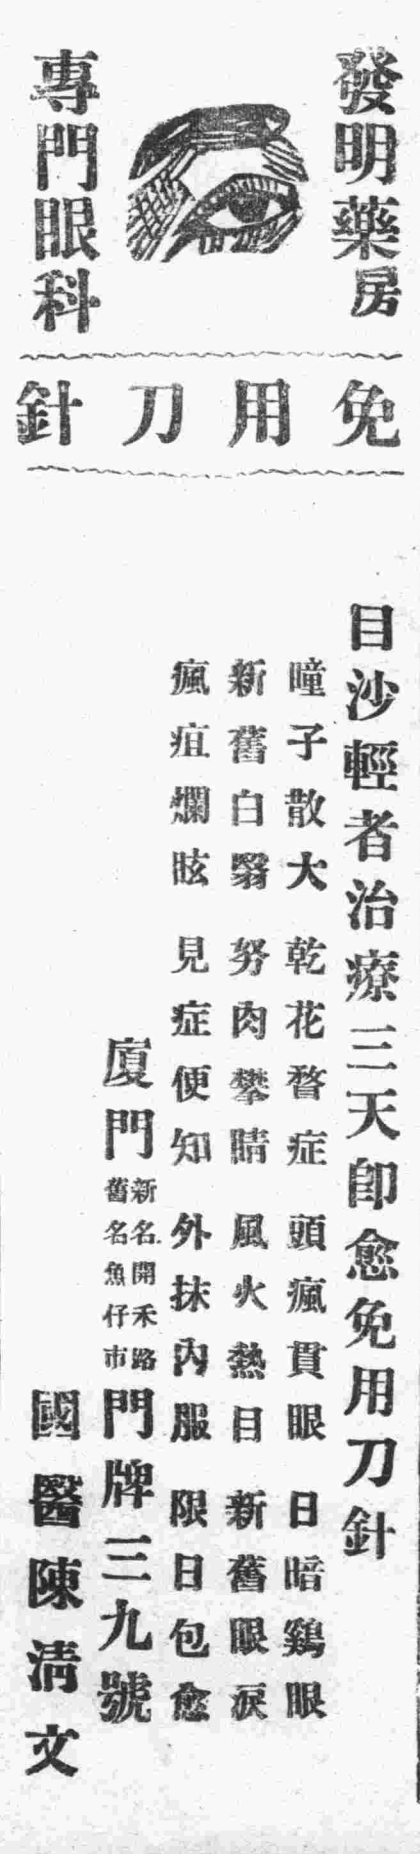 發明藥房
專門眼科
免用刀針
目沙輕者治療三天即愈免用刀針
瞳子散大 乾花瞀症 頭瘋貫眼 日暗鷄眼
新舊白翳 努肉攀睛 風火熱目 新舊眼淚
瘋疽爛眩 見症便知 外抹內服 限日包愈
廈門
新名開禾路
舊名魚仔市
門牌三九號
國醫陳淸文